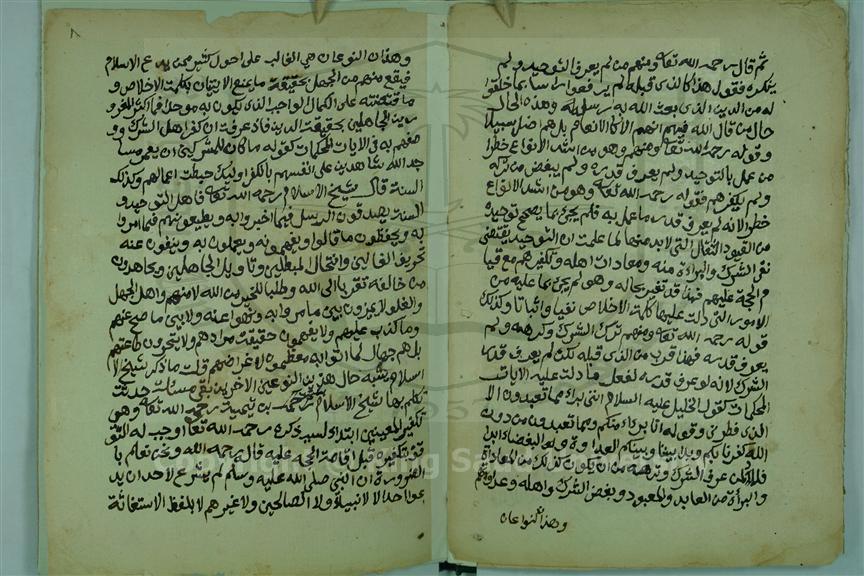 ثم قال رحمه الله تعا ومنهم من لم يعرف التوحيد ولم
ينكره فنقول هذا كالذي قبله لم يرفعوا راسا بما خلقوا
له من الدين الذي بعث الله به رسله وهذه الحال
حال من قال الله فيهم انهم الا كالانعام بل هم اضل سبيلا
و قوله رحمه الله تعا ومنهم وهو من اشد الانواع خطرا
من عمل بالتوحيد ولم يعرف قدره ولم يبغض من تركه
ولم يكفرهم فقوله رحمه الله تعا وهو من اشد الانواع
خطرا لانه لم يعرف قدر ما عمل به فلم يجئ بما يصحح توحيده
من القيود الثقال التي لا بد منها لما علمت ان التوحيد يقتضي
نفي الشرك والبراءة منه ومعادات اهله وتكفيرهم مع قيا
م الحجة عليهم فهذا قد يغتر بحاله وهو لم يجئ بما عليه من
الامور التي دلت عليها كلمة الاخلاص نفيا واثباتا وكذلك
قوله رحمه الله تعا ومنهم من ترك الشرك وكرهه ولم
يعرف قدره فهذا اقرب من الذي قبله لكن لم يعرف قدر
الشرك لانه لو عرف قدره لفعل ما دلت عليه الايات
المحكمات كقول الخليل عليه السلام انني براء مما تعبدون الا
الذي فطرني وقوله انا برءاؤ منكم ومما تعبدون من دون
الله كفرنا بكم وبدا بيننا وبينكم العداوة والبغضاء ابدا
فلا بد لمن عرف الشرك وتركه من ان يكون كذلك من المعاداة
والبرأة من العابد والمعبود وبغض الشرك واهله وعداوتهم
وهذان النوعان
وهذان النوعان هي الغالب على احوال كثير ممن يدعي الاسلام
فيقع منهم من الجهل بحقيقة ما يمنع الاتيان بكلمة الاخلاص و
ما اقتضته على الكمال الواجب الذي يكون به موحدا فما اكثر المغرو
رين الجاهلين بحقيقة الدين فاذ عرفت ان كفر اهل الشرك وو
صفهم به في الايات المحكمات كقوله ما كان للمشركين ان يعمروا مسا
جد الله شاهدين على انفسهم بالكفر اوليك حبطت اعمالهم وكذلك
السنة قال شيخ الاسلام رحمه الله تعا فاهل التوحيد و
السنة يصدقون الرسل فيما اخبروا به ويطيعونهم فيما امروا
به ويحفظون ما قالوا ويفهمونه ويعملون به وينفون عنه
تحريف الغالين وانتحال المبطلين وتاويل الجاهلين ويجاهدون
من خالفهم تقربا الى الله وطلبا للخير من الله لا منهم واهل الجهل
والغلو لا يميزون بين ما امروا به ونهوا عنه ولا بين ما صح عنهم
وما كذب عليهم ولا يفهمون حقيقت مرادهم ولا يتحرون طاعتهم
بل هم جهال لما اتوا به معظمون لاغراضهم قلت ما ذكره شيخ الا
اسلام يشبه حال هذين النوعين الاخرين بقي مسئلة حدثت
تكلم بها شيخ الاسلام احمد بن تيمية رحمه الله تعا وهي
تكفير المعين ابتداء لسبب ذكره رحمه الله تعا اوجب له التو
قف بتكفيره قبل اقامة الحجة عليه قاله رحمه الله ونحن نعلم با
لضرورة ان النبي صلى الله عليه وسلم لم يشرع لاحد ان يد
عوا احدا لا الانبياء ولا الصالحين ولا غيرهم لا بلفظ الاستغاثة